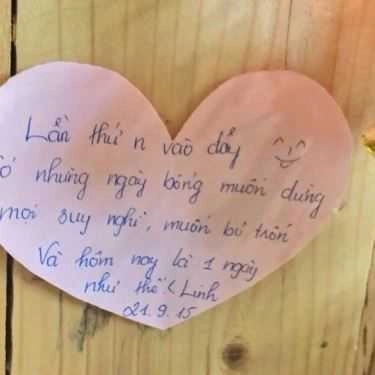 Lần thứ n vào đây
ó những ngày bỗng muốn dừng
mọi suy nghĩ, muốn bỏ trốn
Và hôm nay là 1 ngày
như thế :( Linh
21.9.15